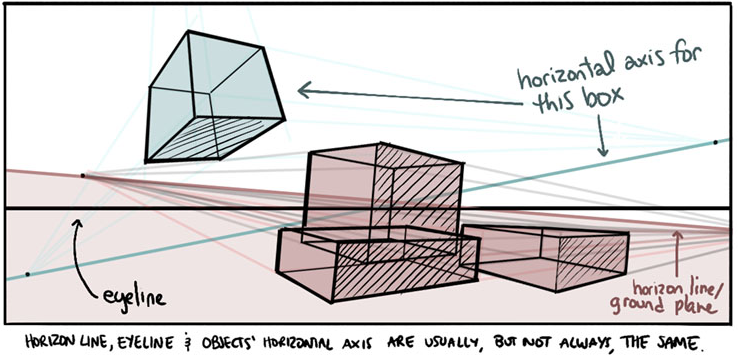 horizontal axis for
this box
eyeline
horizon line/
ground plane
HORIZON LINE, EYELINE & OBJECTS' HORIZONTAL AXIS ARE USUALLY, BUT NOT ALWAYS, THE SAME.